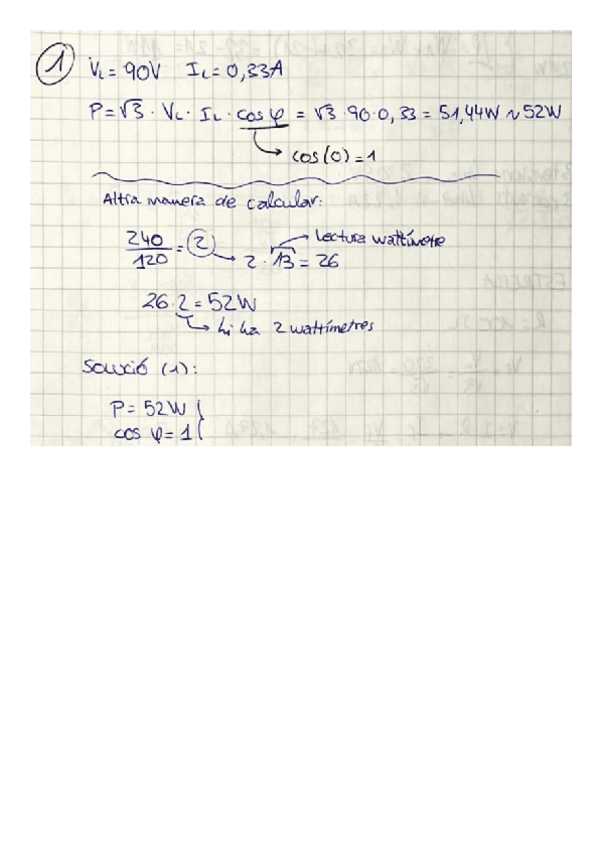 1 VL = 90V IL = 0,33A
P = √3 · VL · IL · cos φ = √3 · 90 · 0,33 = 51,44W ~ 52W
cos(0) = 1
Altra manera de calcular:
240/120 = 2 → 2 · 13 = 26 → lectura wattímetre
26 · 2 = 52W
hi ha 2 wattímetres
Solució (1):
P = 52W
cos φ = 1